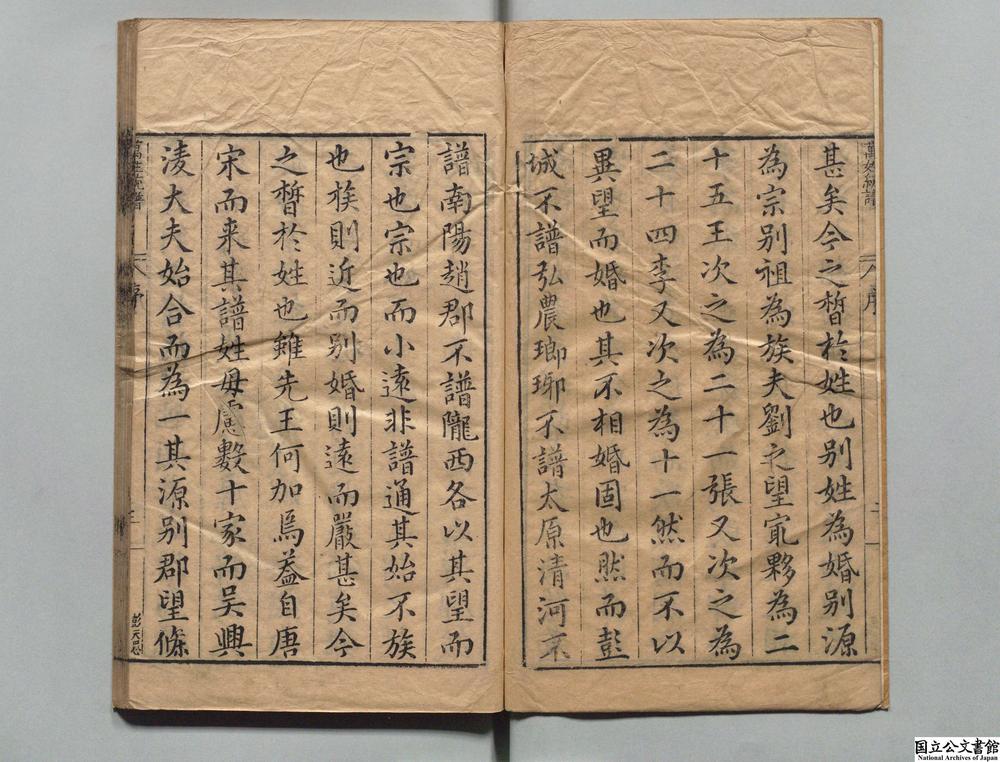 甚矣今之晳於姓也别姓為婚别源
為宗别祖為族夫劉之望㝡夥為二
十五王次之為二十一張又次之為
二十四李又次之為十一然而不以
異望而婚也其不相婚固也然而彭
城不譜弘農瑯琊不譜太原清河不
譜南陽趙郡不譜隴西各以其望而
宗也宗也而小遠非譜通其始不族
也族則近而别婚則遠而嚴甚矣今
之晳於姓也雖先王何加焉盖自唐
宋而来其譜姓毋慮數十家而吴興
淩大夫始合而為一其源别郡望條
萬姓統譜
序
二
萬姓統譜
序
三
彭天恩
国立公文書館
National Archives of Japan